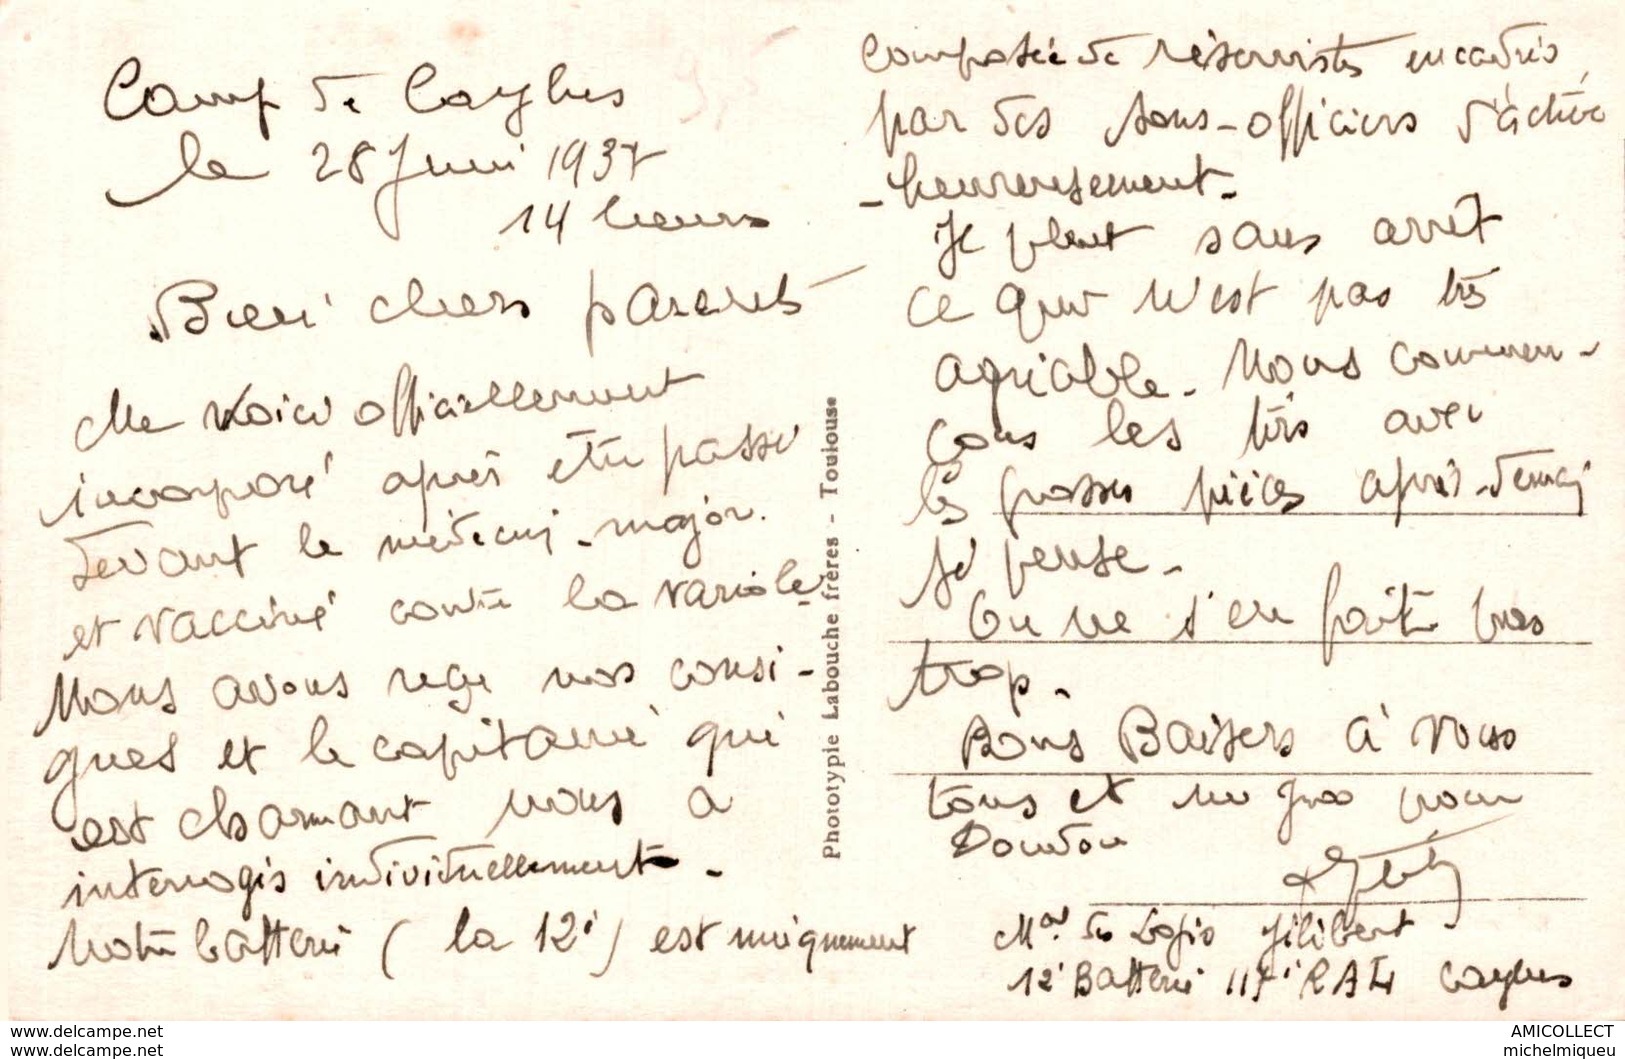 Camp de Caylus
le 28 Juin 1937
14 heures
Bien chers parents
Me voici officiellement
incorporé après être passé
devant le médecin-major.
et vacciné contre la variole.
Nous avons reçu nos consi-
gnes et le capitaine qui
est charmant nous a
interrogés individuellement.
Notre batterie (la 12e) est uniquement
composée de réservistes encadrés
par des sous-officiers d'active
- heureusement -
Il pleut sans arrêt
ce qui n'est pas très
agréable. Nous commen-
çons les tirs avec
les grosses pièces après-demain
je pense.
On ne s'en fait pas
trop.
Bons Baisers à vous
tous et un gros pour
Doudou
Mal des Logis Gilibert
12e Batterie 117e RALt Caylus
Phototypie Labouche frères - Toulouse
www.delcampe.com
www.delcampe.com
AMICOLLECT
michelmiqueu